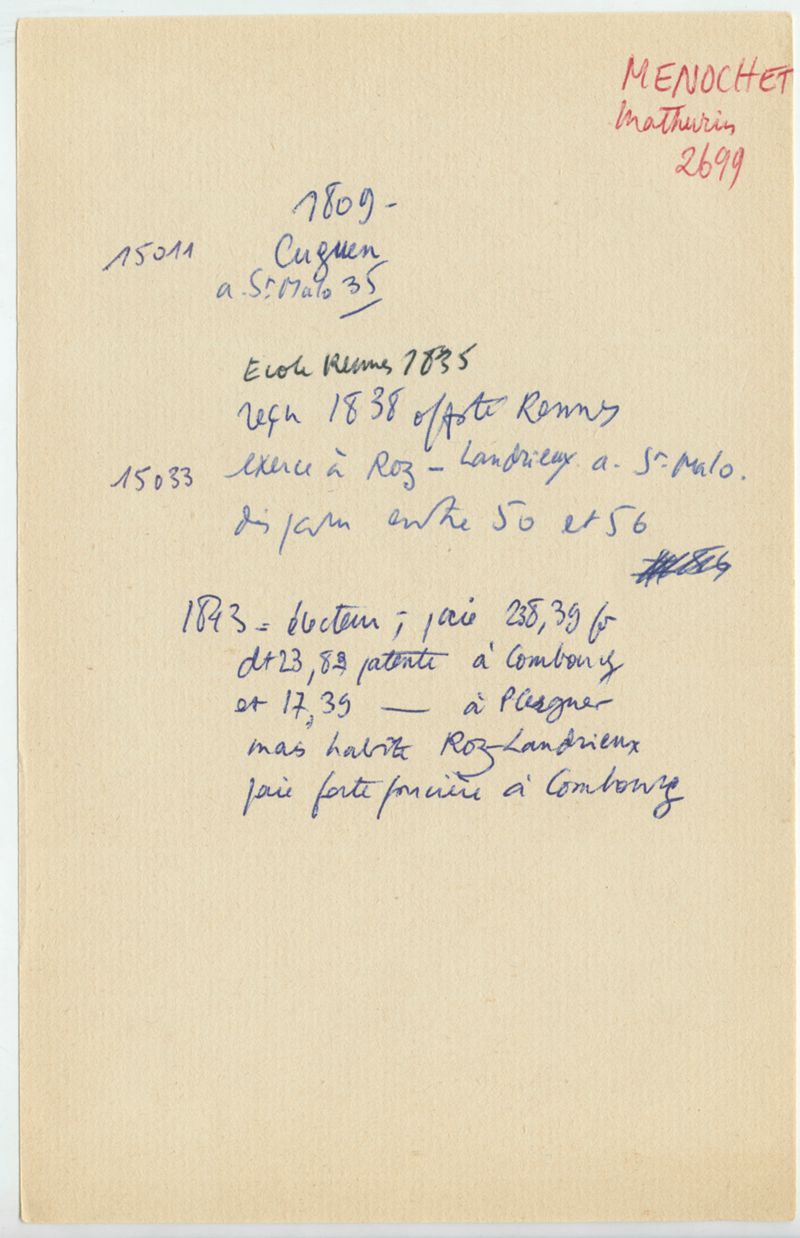 MENOCHET
Mathurin
2699
1809 -
15011 Cuguen
a. St Malo 35
Ecole Rennes 1835
reçu 1838 off Rennes
15033 exerce à Roz-Landrieux a. St Malo.
disparu entre 50 et 56
1843 = électeur ; paie 238,39 fr
dt 23,83 patente à Combourg
et 17,39 — à Plerguer
mais habite Roz-Landrieux
paie forte foncière à Combourg